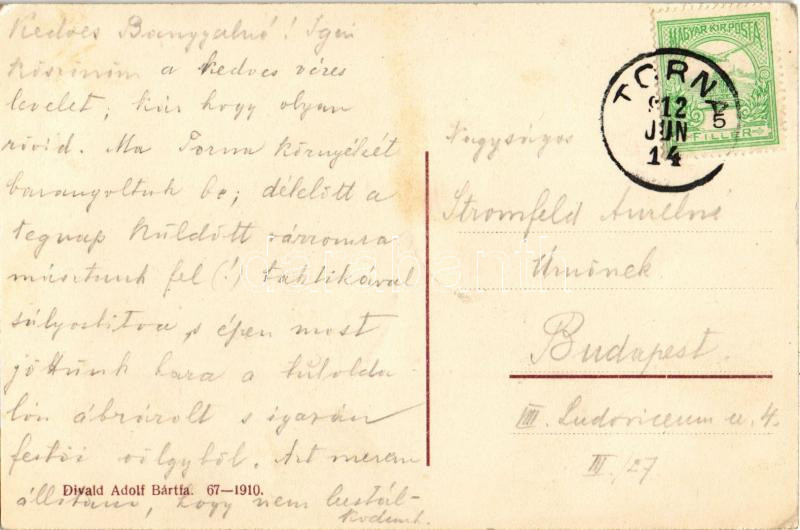 Kedves Banyyalué! Igen
köszönöm a kedves véres
levelet; kár hogy olyan
rövid. Ma Torna környékét
barangoltuk be; délelőtt a
tegnap küldött várromra
másztunk fel (!) taktikával
súlyosbítva, s épen most
jöttünk haza a túlolda-
lón ábrázolt s igazán
festői völgyből. Azt merem
állítani, hogy nem lustál-
kodunk.
Divald Adolf Bártfa. 67—1910.
MAGYAR KIR. POSTA
5
FILLER
TORNA
912
JUN
14
Nagyságos
Stromfeld Aurélné
Úrnőnek
Budapest.
VIII. Ludoviceum u. 4.
III./27